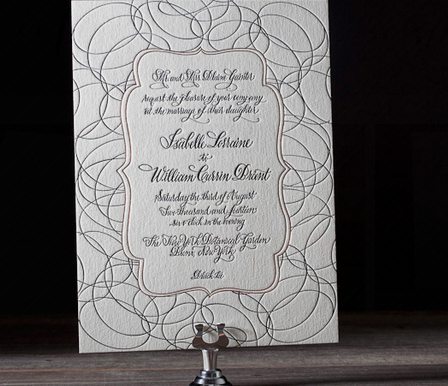 Mr. and Mrs.
request the pleasure of your company
at the marriage of their daughter
Isabelle Lorraine
to
William Currin Brant
Saturday the third of August
Two thousand and fourteen
six o'clock in the evening
The New York Botanical Garden
Bronx, New York
Black Tie